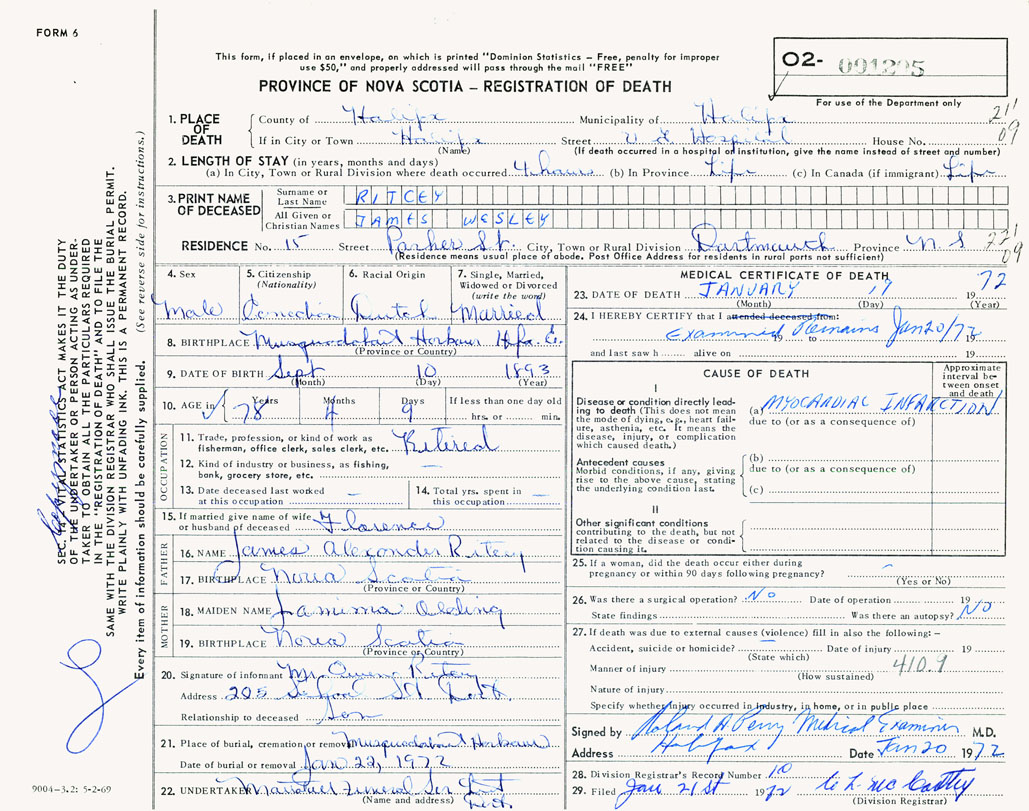 FORM 6
This form, if placed in an envelope, on which is printed "Dominion Statistics – Free, penalty for improper
use $50," and properly addressed will pass through the mail "FREE"
PROVINCE OF NOVA SCOTIA – REGISTRATION OF DEATH
02- 001205
For use of the Department only
1. PLACE OF DEATH
County of Halifax Municipality of Halifax 21'
If in City or Town Halifax Street V G Hospital House No. 09
(Name) (If death occurred in a hospital or institution, give the name instead of street and number)
2. LENGTH OF STAY (in years, months and days)
(a) In City, Town or Rural Division where death occurred 4 hours (b) In Province Life (c) In Canada (if immigrant) Life
3. PRINT NAME OF DECEASED
Surname or Last Name RITCEY
All Given or Christian Names JAMES WESLEY
RESIDENCE No. 15 Street Parker St. City, Town or Rural Division Dartmouth Province N S 22' 09
(Residence means usual place of abode. Post Office Address for residents in rural parts not sufficient)
4. Sex
Male
5. Citizenship
(Nationality)
Canadian
6. Racial Origin
Dutch
7. Single, Married,
Widowed or Divorced
(write the word)
Married
8. BIRTHPLACE Musquodoboit Harbour Hfx. Co.
(Province or Country)
9. DATE OF BIRTH Sept 10 1893
(Month) (Day) (Year)
10. AGE in Years Months Days If less than one day old
78 4 9 hrs. or min.
OCCUPATION
11. Trade, profession, or kind of work as
fisherman, office clerk, sales clerk, etc. Retired
12. Kind of industry or business, as fishing,
bank, grocery store, etc. —
13. Date deceased last worked
at this occupation —
14. Total yrs. spent in
this occupation —
15. If married give name of wife
or husband of deceased Florence
FATHER
16. NAME James Alexander Ritcey
17. BIRTHPLACE Nova Scotia
(Province or Country)
MOTHER
18. MAIDEN NAME Jamima Olding
19. BIRTHPLACE Nova Scotia
(Province or Country)
20. Signature of informant Mr Owen Ritcey
Address 205 School St Dart.
Relationship to deceased Son
21. Place of burial, cremation or removal Musquodoboit Harbour
Date of burial or removal Jan 22, 1972
22. UNDERTAKER Funeral Ser Ltd
(Name and address) Dart
MEDICAL CERTIFICATE OF DEATH
23. DATE OF DEATH JANUARY 19 1972
(Month) (Day) (Year)
24. I HEREBY CERTIFY that I attended deceased from:
Examined Remains Jan 20/72
19 to 19
and last saw h alive on 19
CAUSE OF DEATH
Approximate
interval be-
tween onset
and death
I
Disease or condition directly lead-
ing to death (This does not mean
the mode of dying, e.g., heart fail-
ure, asthenia, etc. It means the
disease, injury, or complication
which caused death.)
(a) MYOCARDIAC INFARCTION
due to (or as a consequence of)
Antecedent causes
Morbid conditions, if any, giving
rise to the above cause, stating
the underlying condition last.
(b)
due to (or as a consequence of)
(c)
II
Other significant conditions
contributing to the death, but not
related to the disease or condi-
tion causing it.
25. If a woman, did the death occur either during
pregnancy or within 90 days following pregnancy? –
(Yes or No)
26. Was there a surgical operation? No Date of operation 19
State findings Was there an autopsy? NO
27. If death was due to external causes (violence) fill in also the following: –
Accident, suicide or homicide? Date of injury 19
(State which)
Manner of injury 410.9
(How sustained)
Nature of injury
Specify whether injury occurred in industry, in home, or in public place
Signed by Roland A Perry Medical Examiner M.D.
Address Halifax Date Jan 20 1972
28. Division Registrar's Record Number 10
29. Filed Jan 21st 1972
(Division Registrar)
SEC. 14, VITAL STATISTICS ACT MAKES IT THE DUTY
OF THE UNDERTAKER OR PERSON ACTING AS UNDER-
TAKER TO OBTAIN ALL THE PARTICULARS REQUIRED
IN THE "REGISTRATION OF DEATH" AND TO FILE THE
SAME WITH THE DIVISION REGISTRAR WHO SHALL ISSUE THE BURIAL PERMIT.
WRITE PLAINLY WITH UNFADING INK. THIS IS A PERMANENT RECORD.
Every item of information should be carefully supplied. (See reverse side for instructions.)
9004–3.2: 5-2-69